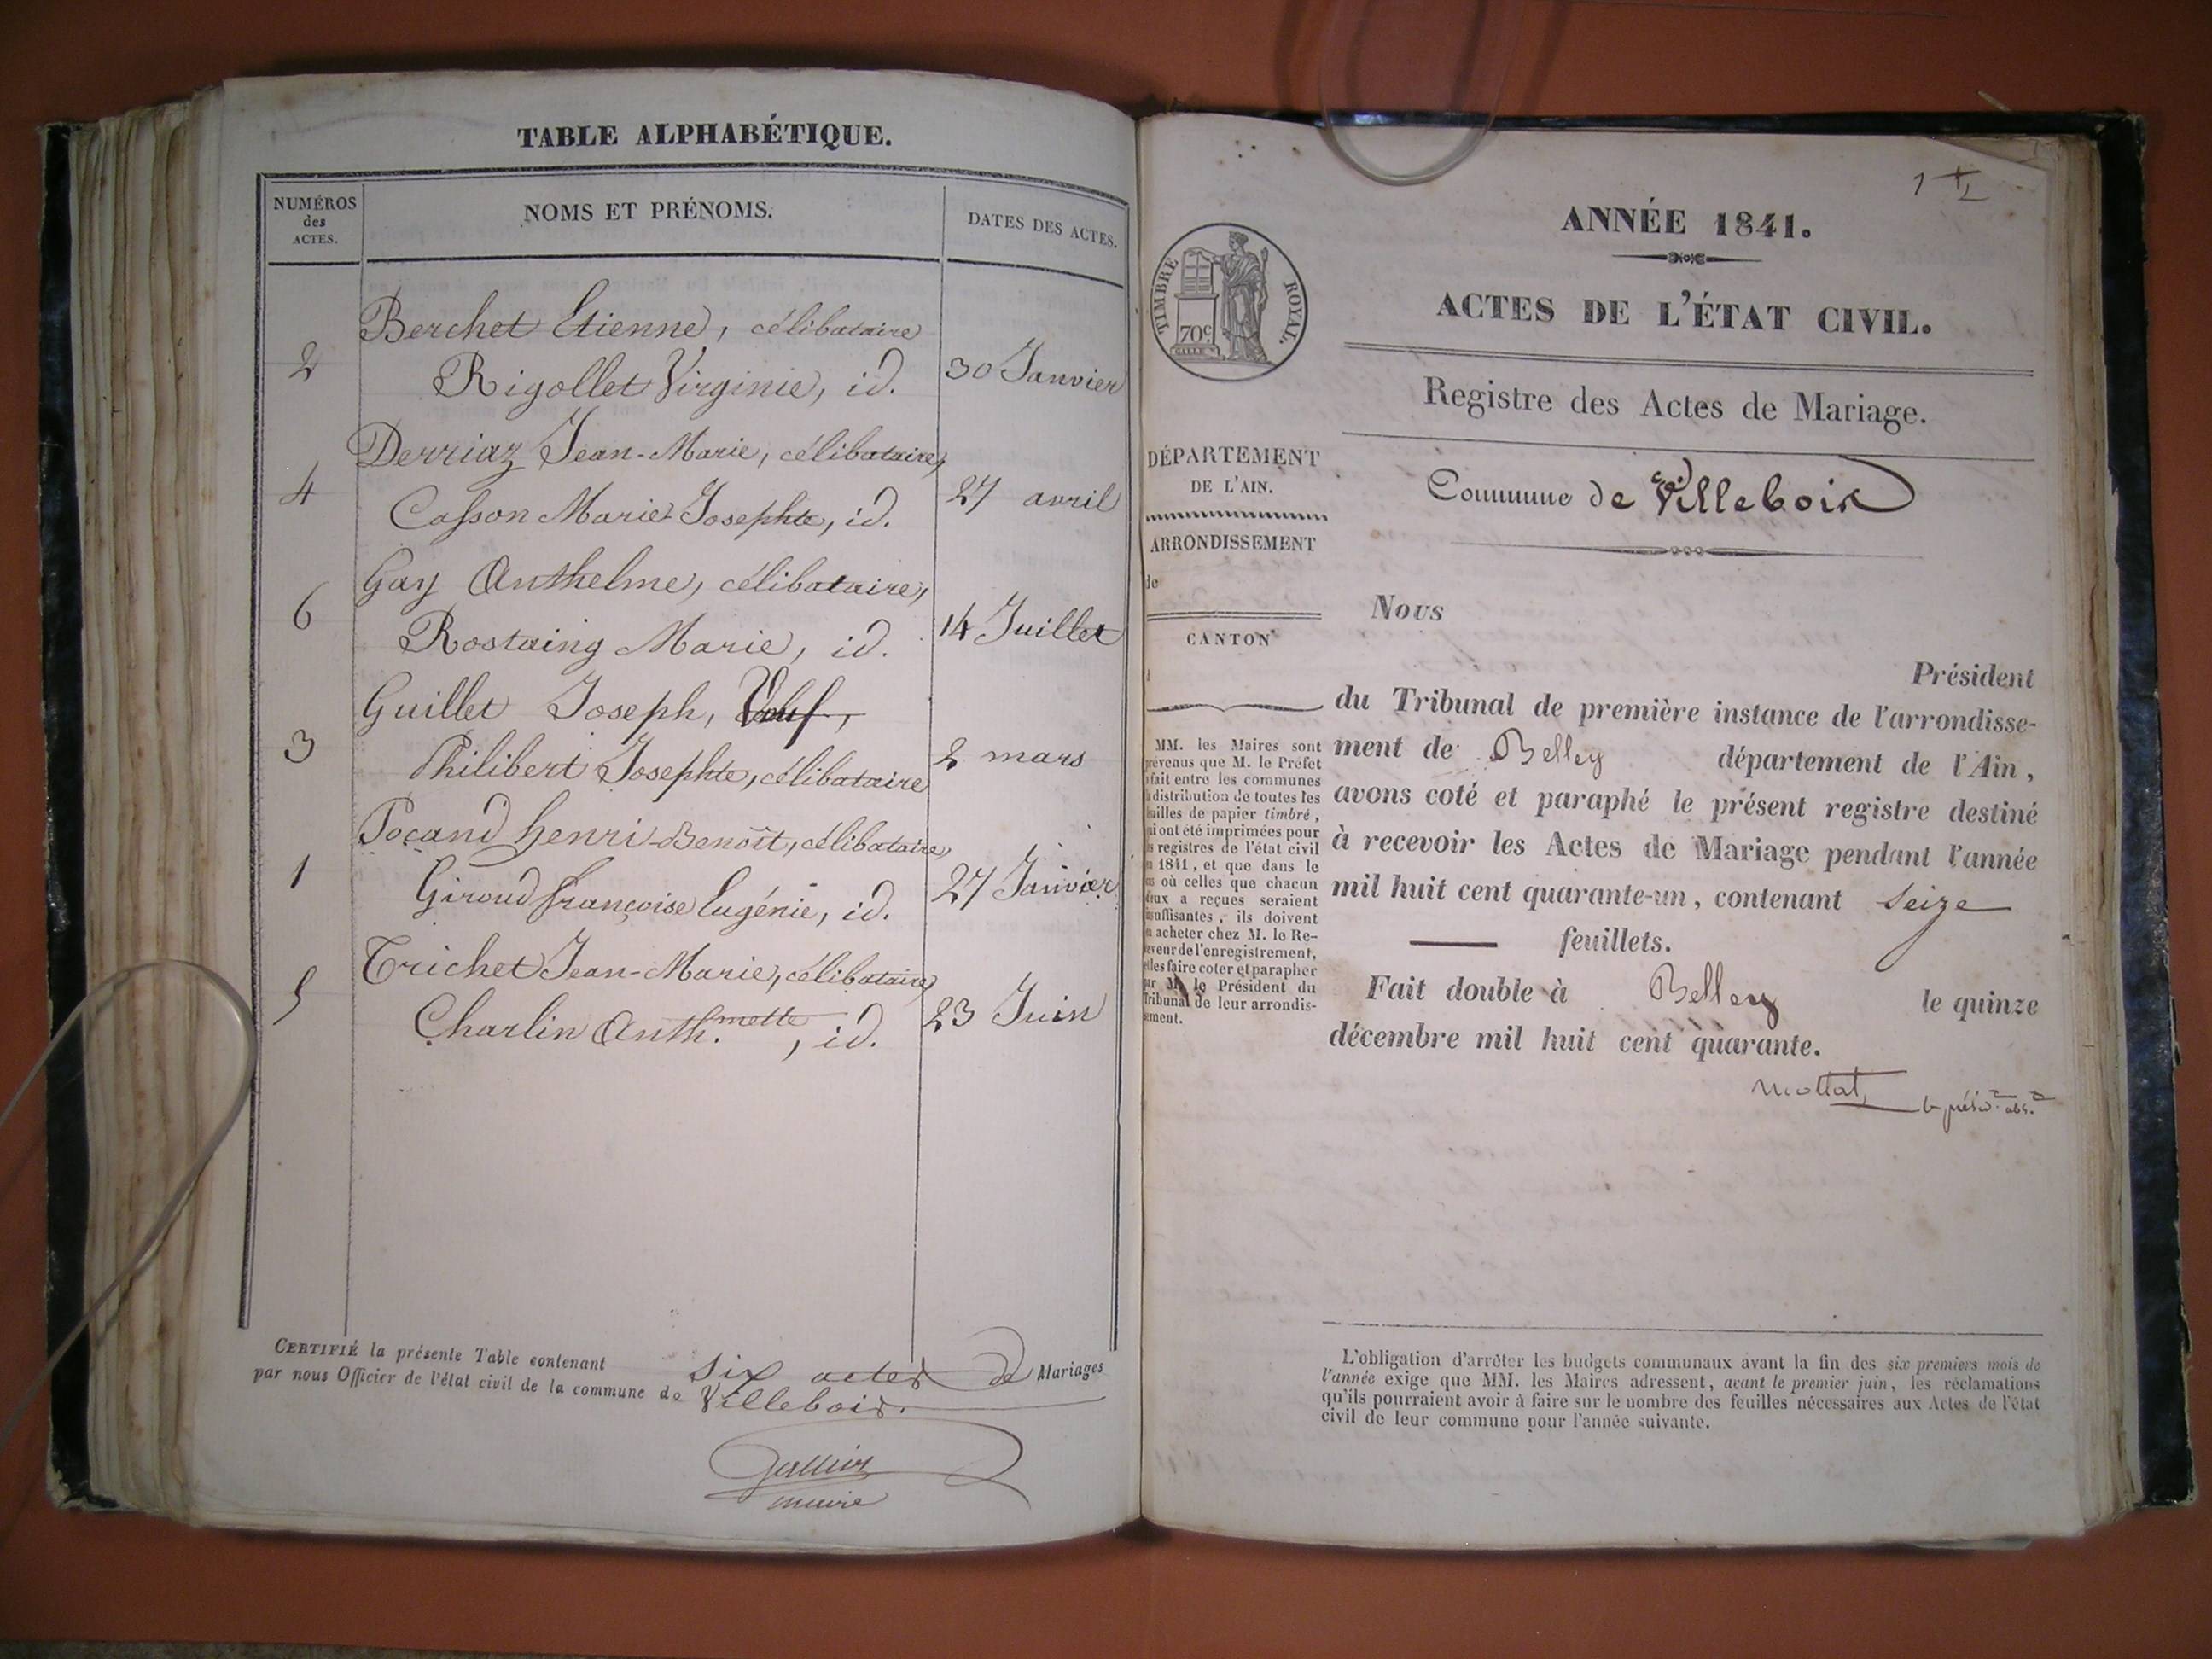 TABLE ALPHABÉTIQUE.
NUMÉROS
des
ACTES.
NOMS ET PRÉNOMS.
DATES DES ACTES.
Berchet Etienne, célibataire
2 Rigollet Virginie, id. 30 Janvier
Derriaz Jean-Marie, célibataire,
4 Casson Marie-Josephte, id. 27 avril
Gay Anthelme, célibataire,
6 Rostaing Marie, id. 14 Juillet
Guillet Joseph, Veuf,
3 Philibert Josephte, célibataire 2 mars
Pocand Henri-Benoît, célibataire,
1 Giroud françoise Eugénie, id. 27 Janvier
Trichet Jean-Marie, célibataire,
5 Charlin Anth.mette, id. 23 Juin
CERTIFIÉ la présente Table contenant six actes de Mariages
par nous Officier de l'état civil de la commune de Villebois.
maire
ANNÉE 1841.
ACTES DE L'ÉTAT CIVIL.
TIMBRE ROYAL.
70c
Registre des Actes de Mariage.
Commune de Villebois
DÉPARTEMENT
DE L'AIN.
ARRONDISSEMENT
de
CANTON
MM. les Maires sont
prévenus que M. le Préfet
fait entre les communes
distribution de toutes les
feuilles de papier timbré,
qui ont été imprimées pour
registres de l'état civil
1841, et que dans le
où celles que chacun
d'eux a reçues seraient
insuffisantes, ils doivent
acheter chez M. le Re-
ceveur de l'enregistrement,
et les faire coter et parapher
par M. le Président du
Tribunal de leur arrondis-
sement.
Nous
Président
du Tribunal de première instance de l'arrondisse-
ment de Belley département de l'Ain,
avons coté et paraphé le présent registre destiné
à recevoir les Actes de Mariage pendant l'année
mil huit cent quarante-un, contenant seize
feuillets.
Fait double à Belley le quinze
décembre mil huit cent quarante.
L'obligation d'arrêter les budgets communaux avant la fin des six premiers mois de
l'année exige que MM. les Maires adressent, avant le premier juin, les réclamations
qu'ils pourraient avoir à faire sur le nombre des feuilles nécessaires aux Actes de l'état
civil de leur commune pour l'année suivante.